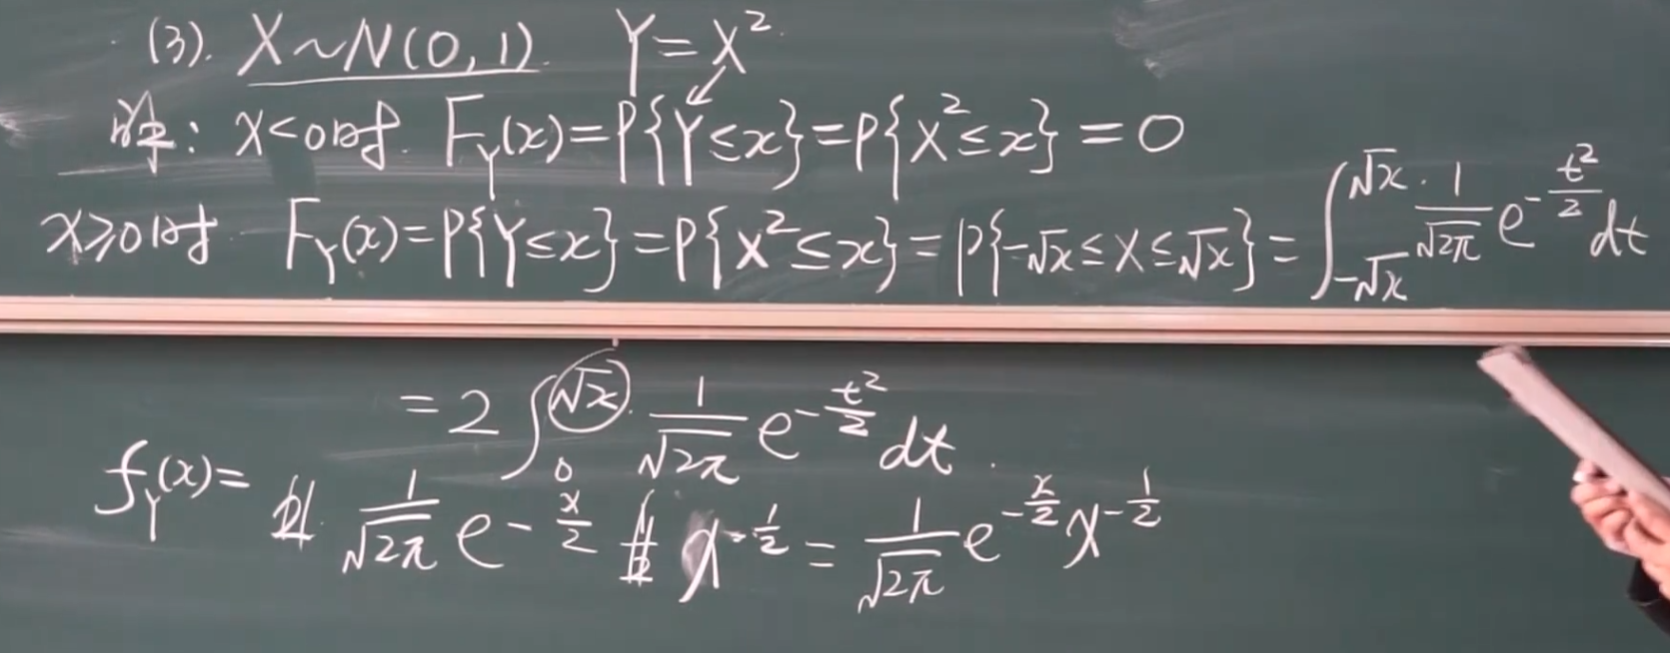 (3). X~N(0,1) Y=X²
解: x<0时. F_Y(x)=P{Y≤x}=P{X²≤x}=0
x≥0时 F_Y(x)=P{Y≤x}=P{X²≤x}=P{-√x≤X≤√x}=∫_{-√x}^{√x} 1/√2π e^{-t²/2} dt
=2∫_0^{√x} 1/√2π e^{-t²/2} dt.
f_Y(x)= 2 1/√2π e^{-x/2} 1/2 x^{-1/2} = 1/√2π e^{-x/2} x^{-1/2}